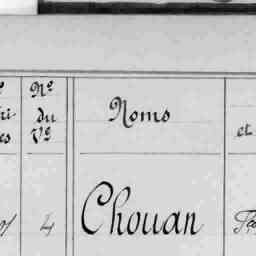 Nº
du
Vº
Noms
et
4
Chouan